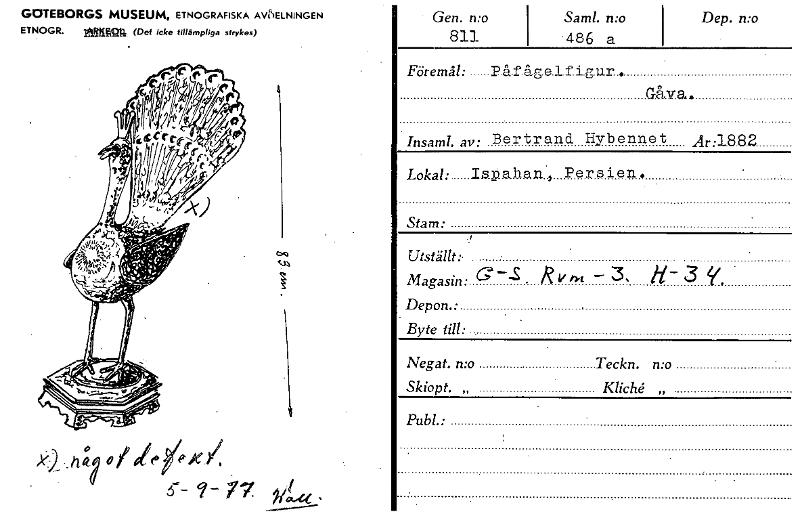 GÖTEBORGS MUSEUM, ETNOGRAFISKA AVDELNINGEN
ETNOGR. ARKEOL. (Det icke tillämpliga strykes)
x)
89 cm.
x) något defekt.
5-9-77.
Gen. n:o Saml. n:o Dep. n:o
811 486 a
Föremål: Påfågelfigur.
Gåva.
Insaml. av: Bertrand Hybennet År:1882
Lokal: Ispahan, Persien.
Stam:
Utställt:
Magasin: G-S. Rvm-3. H-34.
Depon.:
Byte till:
Negat. n:o Teckn. n:o
Skiopt. „ Kliché „
Publ.: